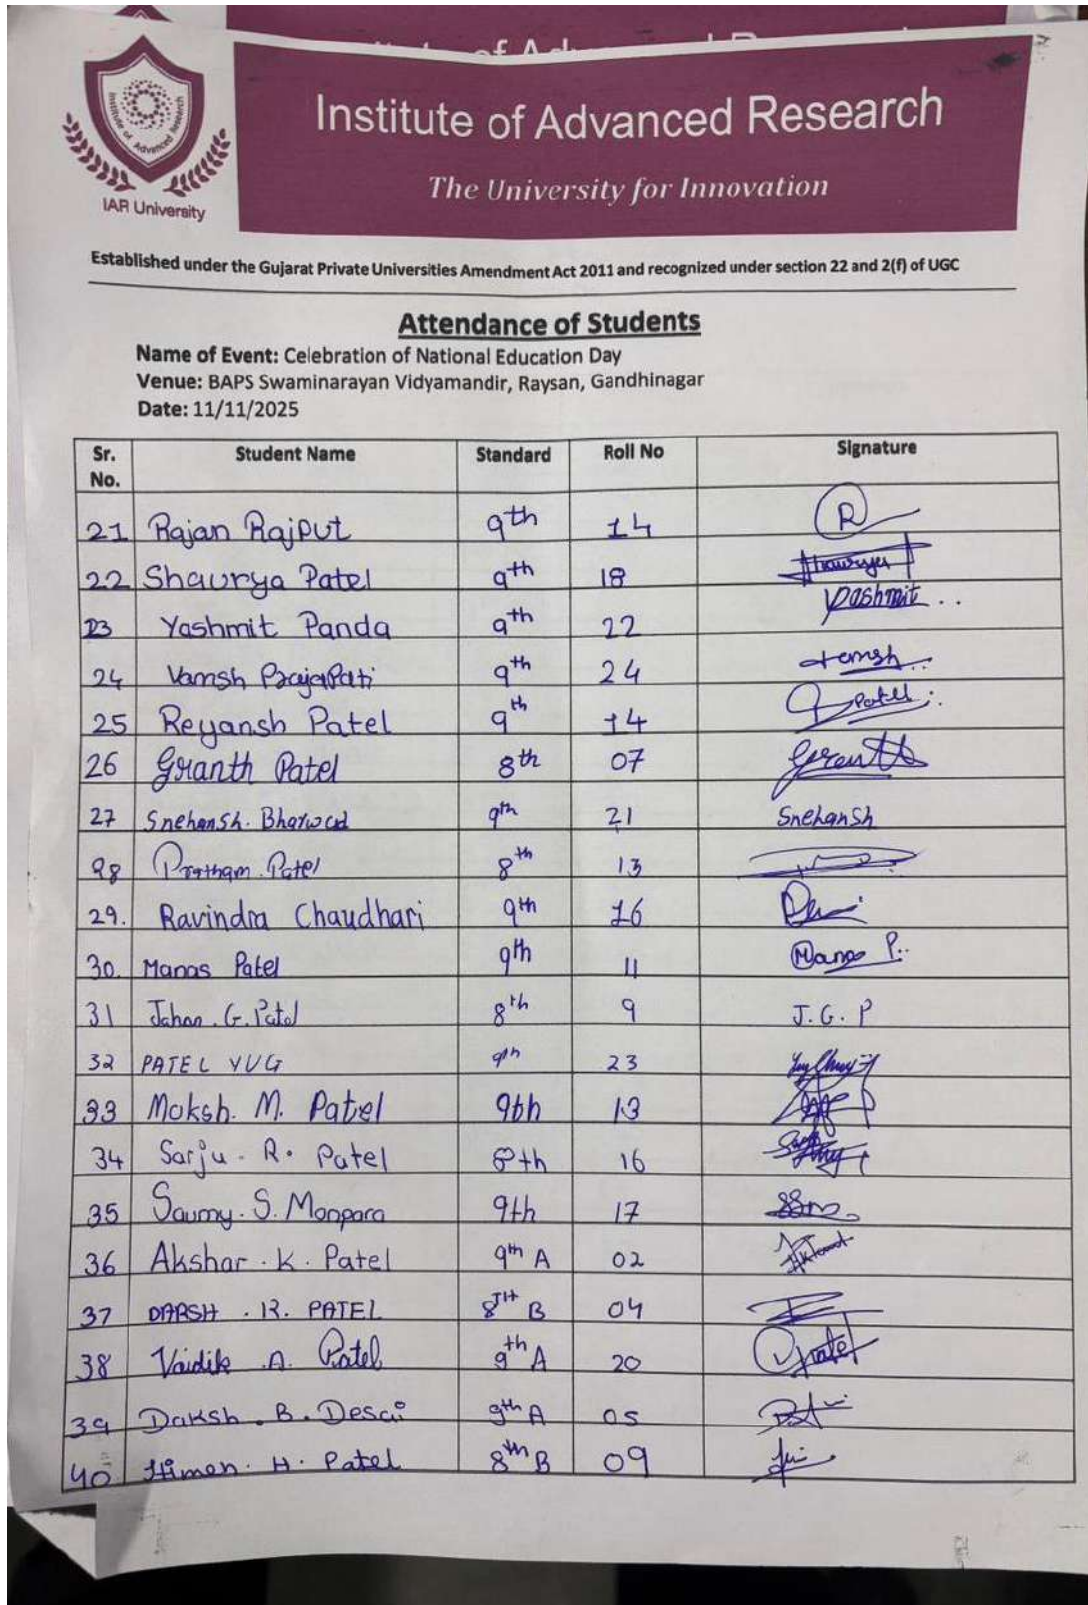 Institute of Advanced Research
IAR University
Institute of Advanced Research
The University for Innovation
Established under the Gujarat Private Universities Amendment Act 2011 and recognized under section 22 and 2(f) of UGC
Attendance of Students
Name of Event: Celebration of National Education Day
Venue: BAPS Swaminarayan Vidyamandir, Raysan, Gandhinagar
Date: 11/11/2025
Sr. No. Student Name Standard Roll No Signature
21 Rajan Rajput 9th 14 R
22 Shaurya Patel 9th 18 Shaurya
23 Yashmit Panda 9th 22 Yashmit..
24 Vamsh Prajapati 9th 24 Vamsh..
25 Reyansh Patel 9th 14 Patel
26 Granth Patel 8th 07 Granth
27 Snehansh. Bharwad 9th 21 Snehansh
28 Pratham Patel 8th 13
29. Ravindra Chaudhari 9th 16
30. Manas Patel 9th 11 Manas P..
31 Jahan. G. Patel 8th 9 J. G. P
32 PATEL YUG 9th 23
33 Moksh. M. Patel 9th 13
34 Sarju. R. Patel 8th 16
35 Saumy. S. Monpara 9th 17
36 Akshar. K. Patel 9th A 02
37 DARSH. R. PATEL 8TH B 04
38 Vaidik. A. Patel 9th A 20 Patel
39 Daksh. B. Desai 9th A 05
40 Himen. H. Patel 8th B 09